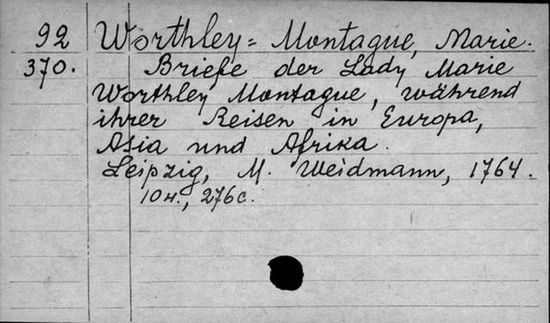 92 Worthley= Montague, Marie.
370. Briefe der Lady Marie
Worthley Montague, während
ihrer Reisen in Europa,
Asia und Afrika.
Leipzig, M. Weidmann, 1764.
10 н., 276 с.